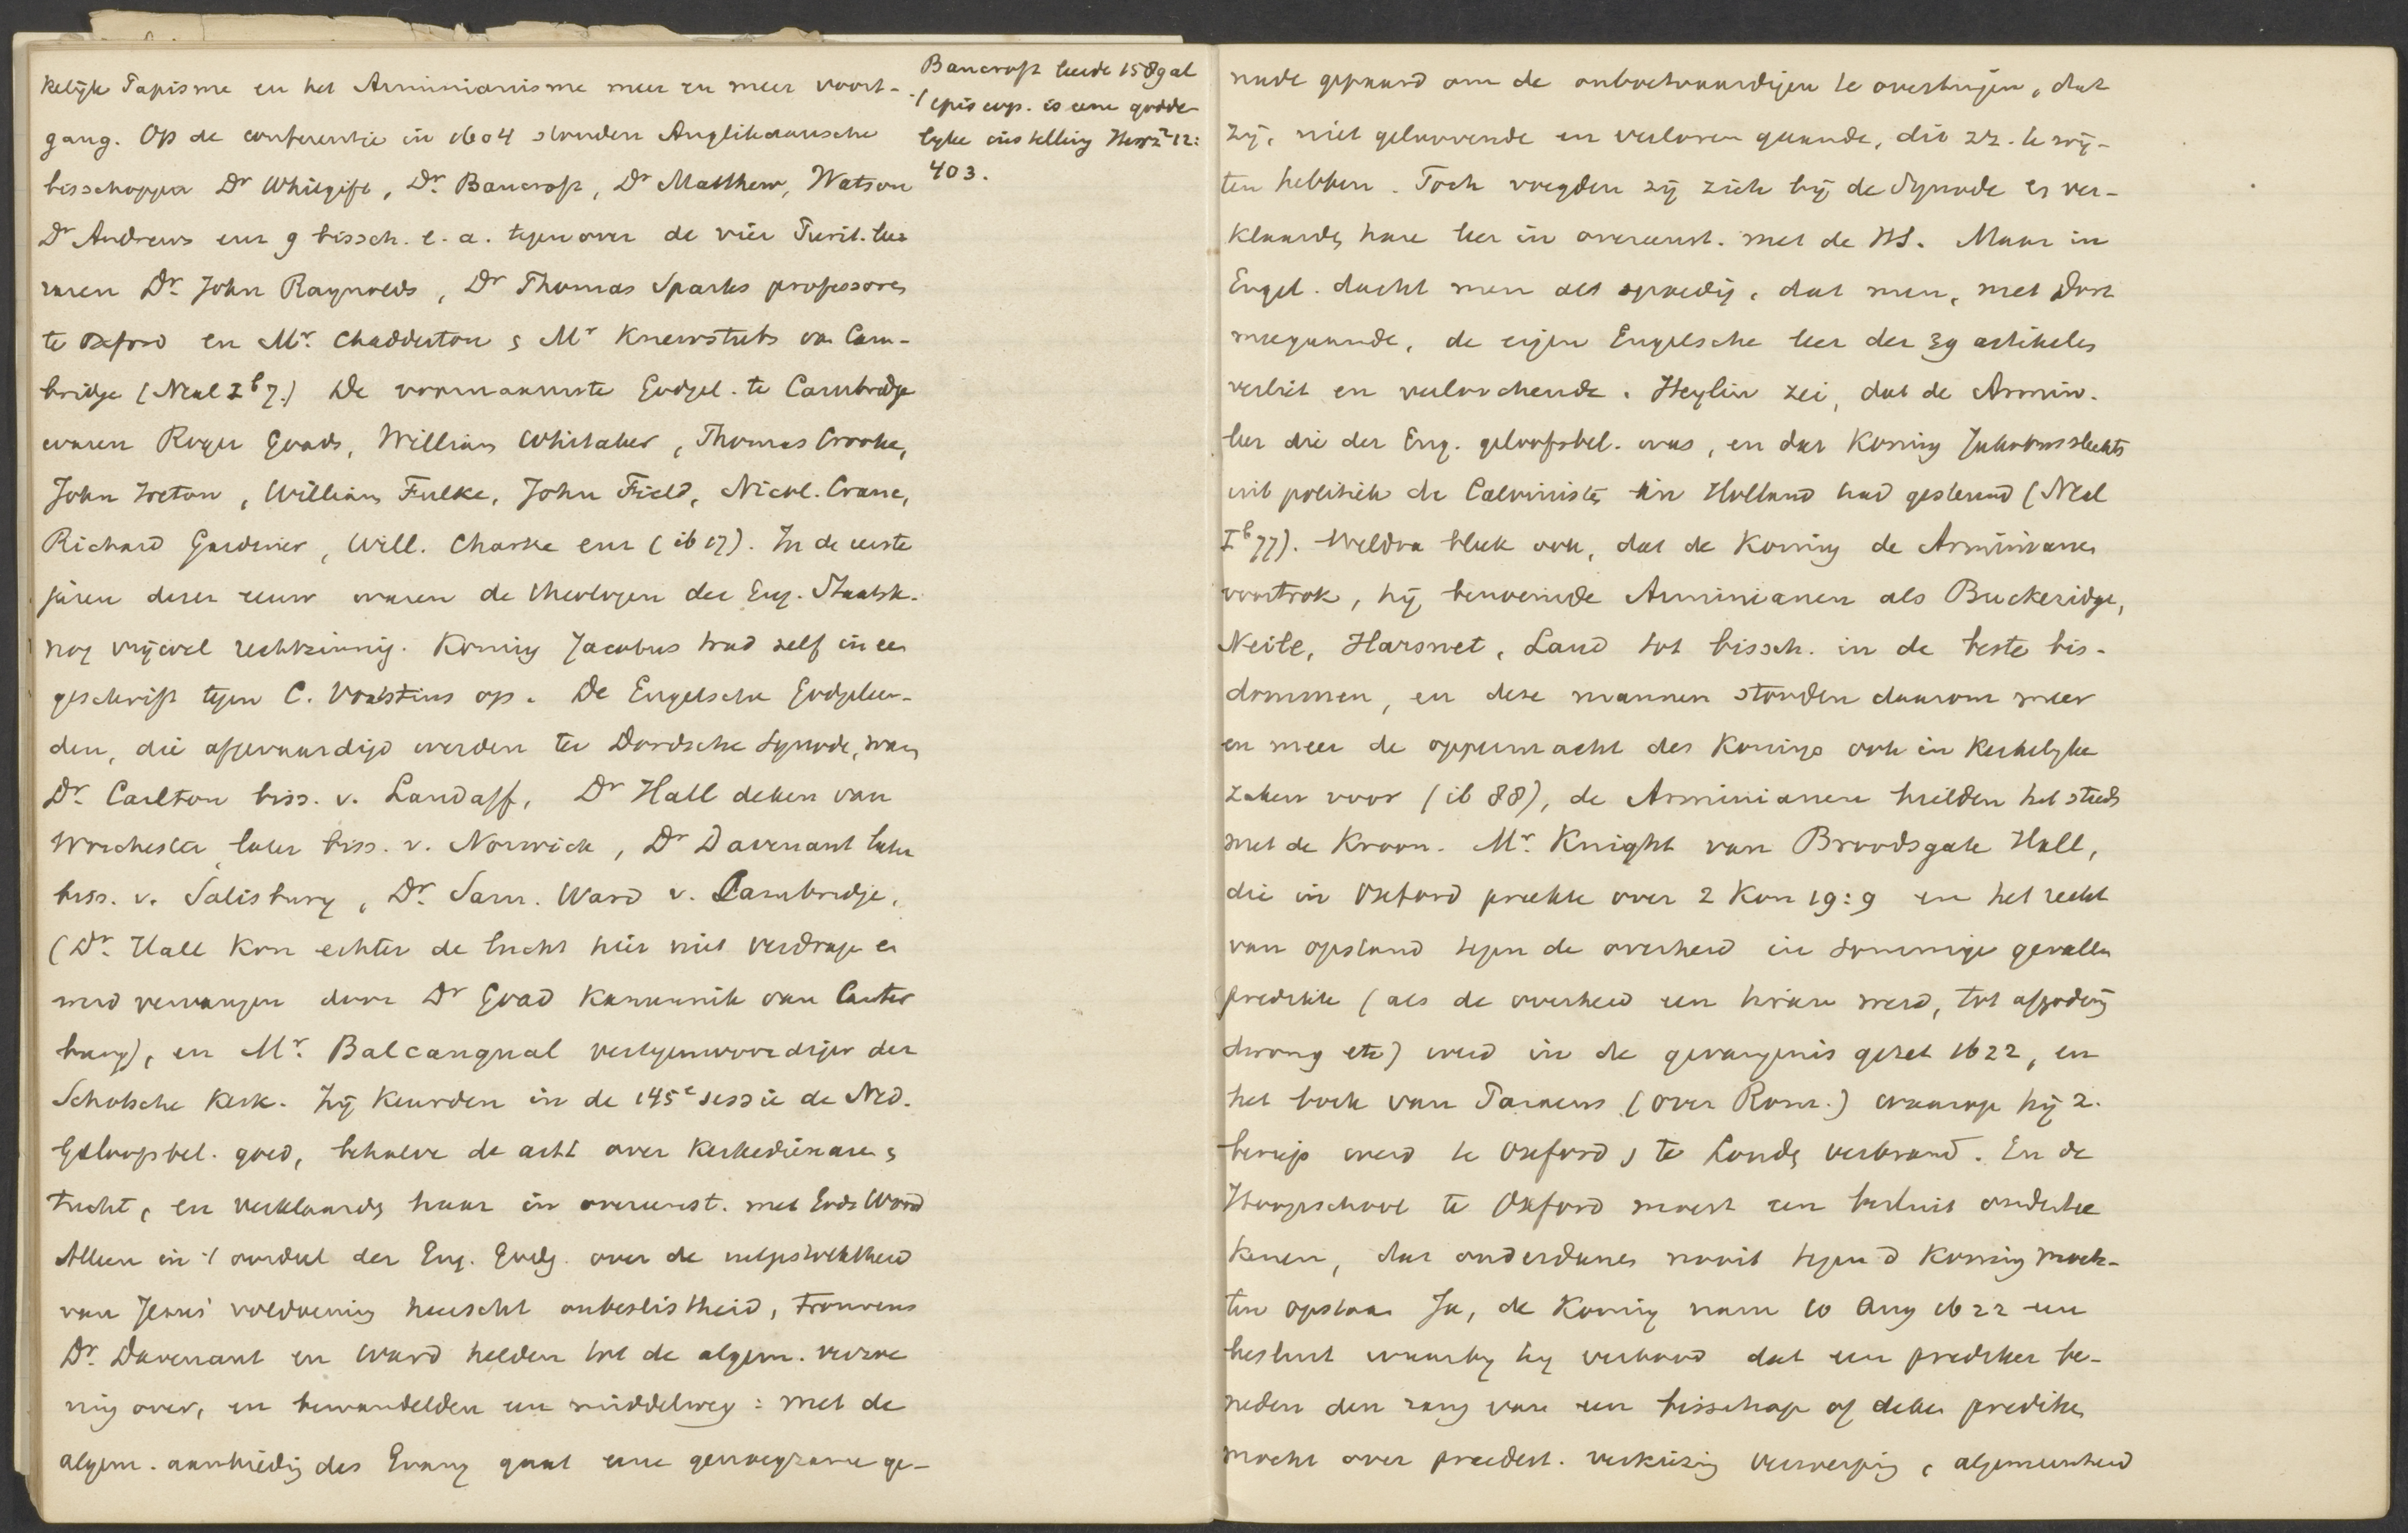 kelijke Papisme en het Arminianisme meer en meer voort-
gang. Op de conferentie in 1604 stonden Anglikaansche
bisschoppen Dr Whitgift, Dr. Bancroft, Dr Matthew, Watson
Dr Andrews enz 9 bissch. e. a. tegenover de vier Purit. lee
raren Dr. John Raynolds, Dr Thomas Sparks professoren
te Oxford en Mr. Chadderton & Mr Knewstubs van Cam-
bridge (Neal I b 7.) De voornaamste Godgel. te Cambridge
waren Roger Goads, William Whitaker, Thomas Crooke,
John Ireton, William Fulke, John Field, Nicol. Crane,
Richard Gardiner, Will. Charke enz (ib 17). In de eerste
jaren dezer eeuw waren de theologen der Eng. Staatsk.
nog vrijwel rechtzinnig. Koning Jacobus trad zelf in een
geschrift tegen C. Vorstius op. De Engelsche Godgeleer-
den, die afgevaardigd werden ter Dordsche Synode, waren
Dr. Carlton biss. v. Landaff, Dr Hall deken van
Worchester later biss. v. Norwich, Dr Davenant later
biss. v. Salisbury, Dr. Sam. Ward v. Cambridge,
(Dr. Hall kon echter de lucht hier niet verdragen en
werd vervangen door Dr Goad kanunnik van Canter
bury), en Mr. Balcanqual vertegenwoordiger der
Schotsche Kerk. Zij keurden in de 145e sessie de Ned.
Geloofsbel. goed, behalve de artt over kerkedienaren &
tucht, en verklaarden haar in overeenst. met Gods Woord
Alleen in 't oordeel der Eng. Godg. over de uitgestrektheid
van Jezus' voldoening heerscht onbeslistheid, trouwens
Dr. Davenant en Ward helden tot de algem. verzoe
ning over, en bewandelden een middelweg: met de
algem. aanbieding des Evang gaat eene genoegzame ge-
Bancroft leerde 1589 al
't episcop. is eene godde-
lijke instelling Herz 2 12:
403.
nade gepaard om de onboetvaardigen te overtuigen, dat
zij, niet geloovende en verloren gaande, dit zz. te wij-
ten hebben. Toch voegden zij zich bij de Synode & ver-
klaarden hare leer in overeenst. met de HS. Maar in
Engel. dacht men al spoedig, dat men, met Dort
meegaande, de eigen Engelsche leer der 39 artikelen
verliet en verloochende. Heylin zei, dat de Armin.
leer die der Eng. geloofsbel. was, en dat Koning Jakobus slechts
uit politiek de Calvinisten in Holland had gesteund (Neal
I b 77). Weldra bleek ook, dat de Koning de Arminianen
voortrok, hij benoemde Arminianen als Buckeridge,
Neile, Harsnet, Laud tot bissch. in de beste bis-
dommen, en deze mannen stonden daarom meer
en meer de oppermacht des Konings ook in kerkelijke
zaken voor (ib 88), de Arminianen hielden het steeds
met de Kroon. Mr. Knight van Broodsgate Hall,
die in Oxford preekte over 2 Kon 19:9 en het recht
van opstand tegen de overheid in sommige gevallen
predikte (als de overheid een tiran werd, tot afgoderij
dwong etc) werd in de gevangenis gezet 1622, en
het boek van Paraeus (over Rom.) waarop hij z.
beriep werd te Oxford & te Londen verbrand. En de
Hoogeschool te Oxford moest een besluit ondertee
kenen, dat onderdanen nooit tegen d Koning moch-
ten opstaan Ja, de Koning nam 10 Aug 1622 een
besluit waarbij hij verbood dat een prediker be-
neden den rang van een bisschop of deken prediken
mocht over praedest. verkiezing verwerping, algemeenheid